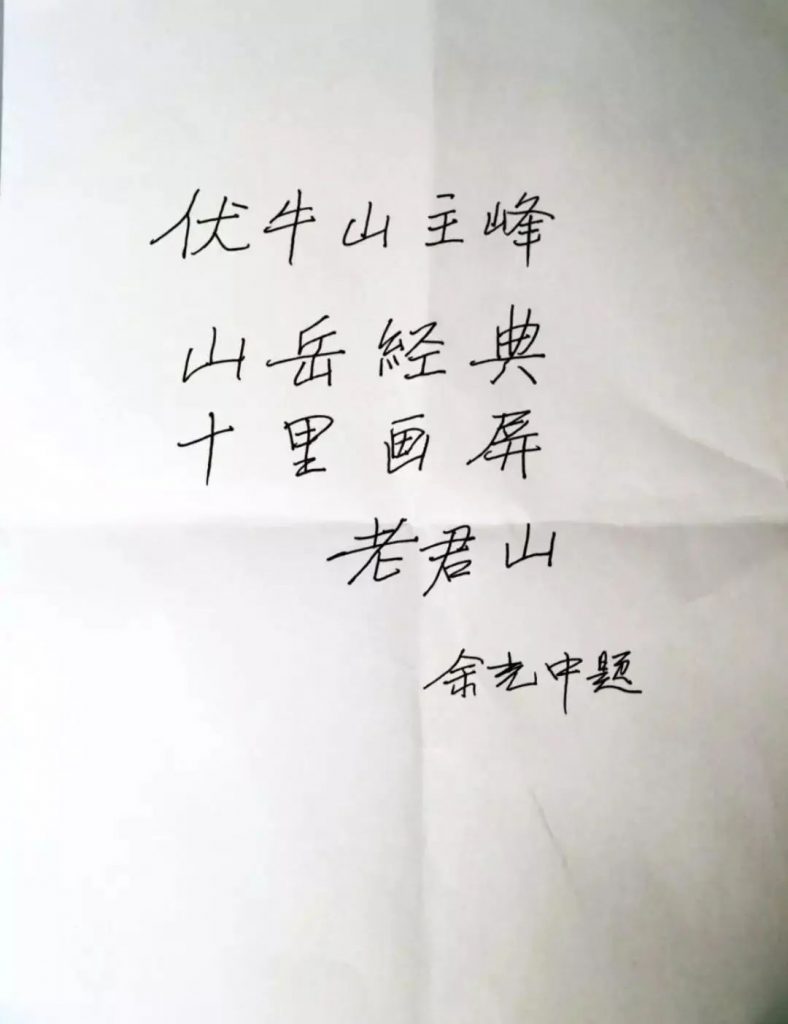 伏牛山主峰
山岳經典
十里画屏
老君山
余光中题